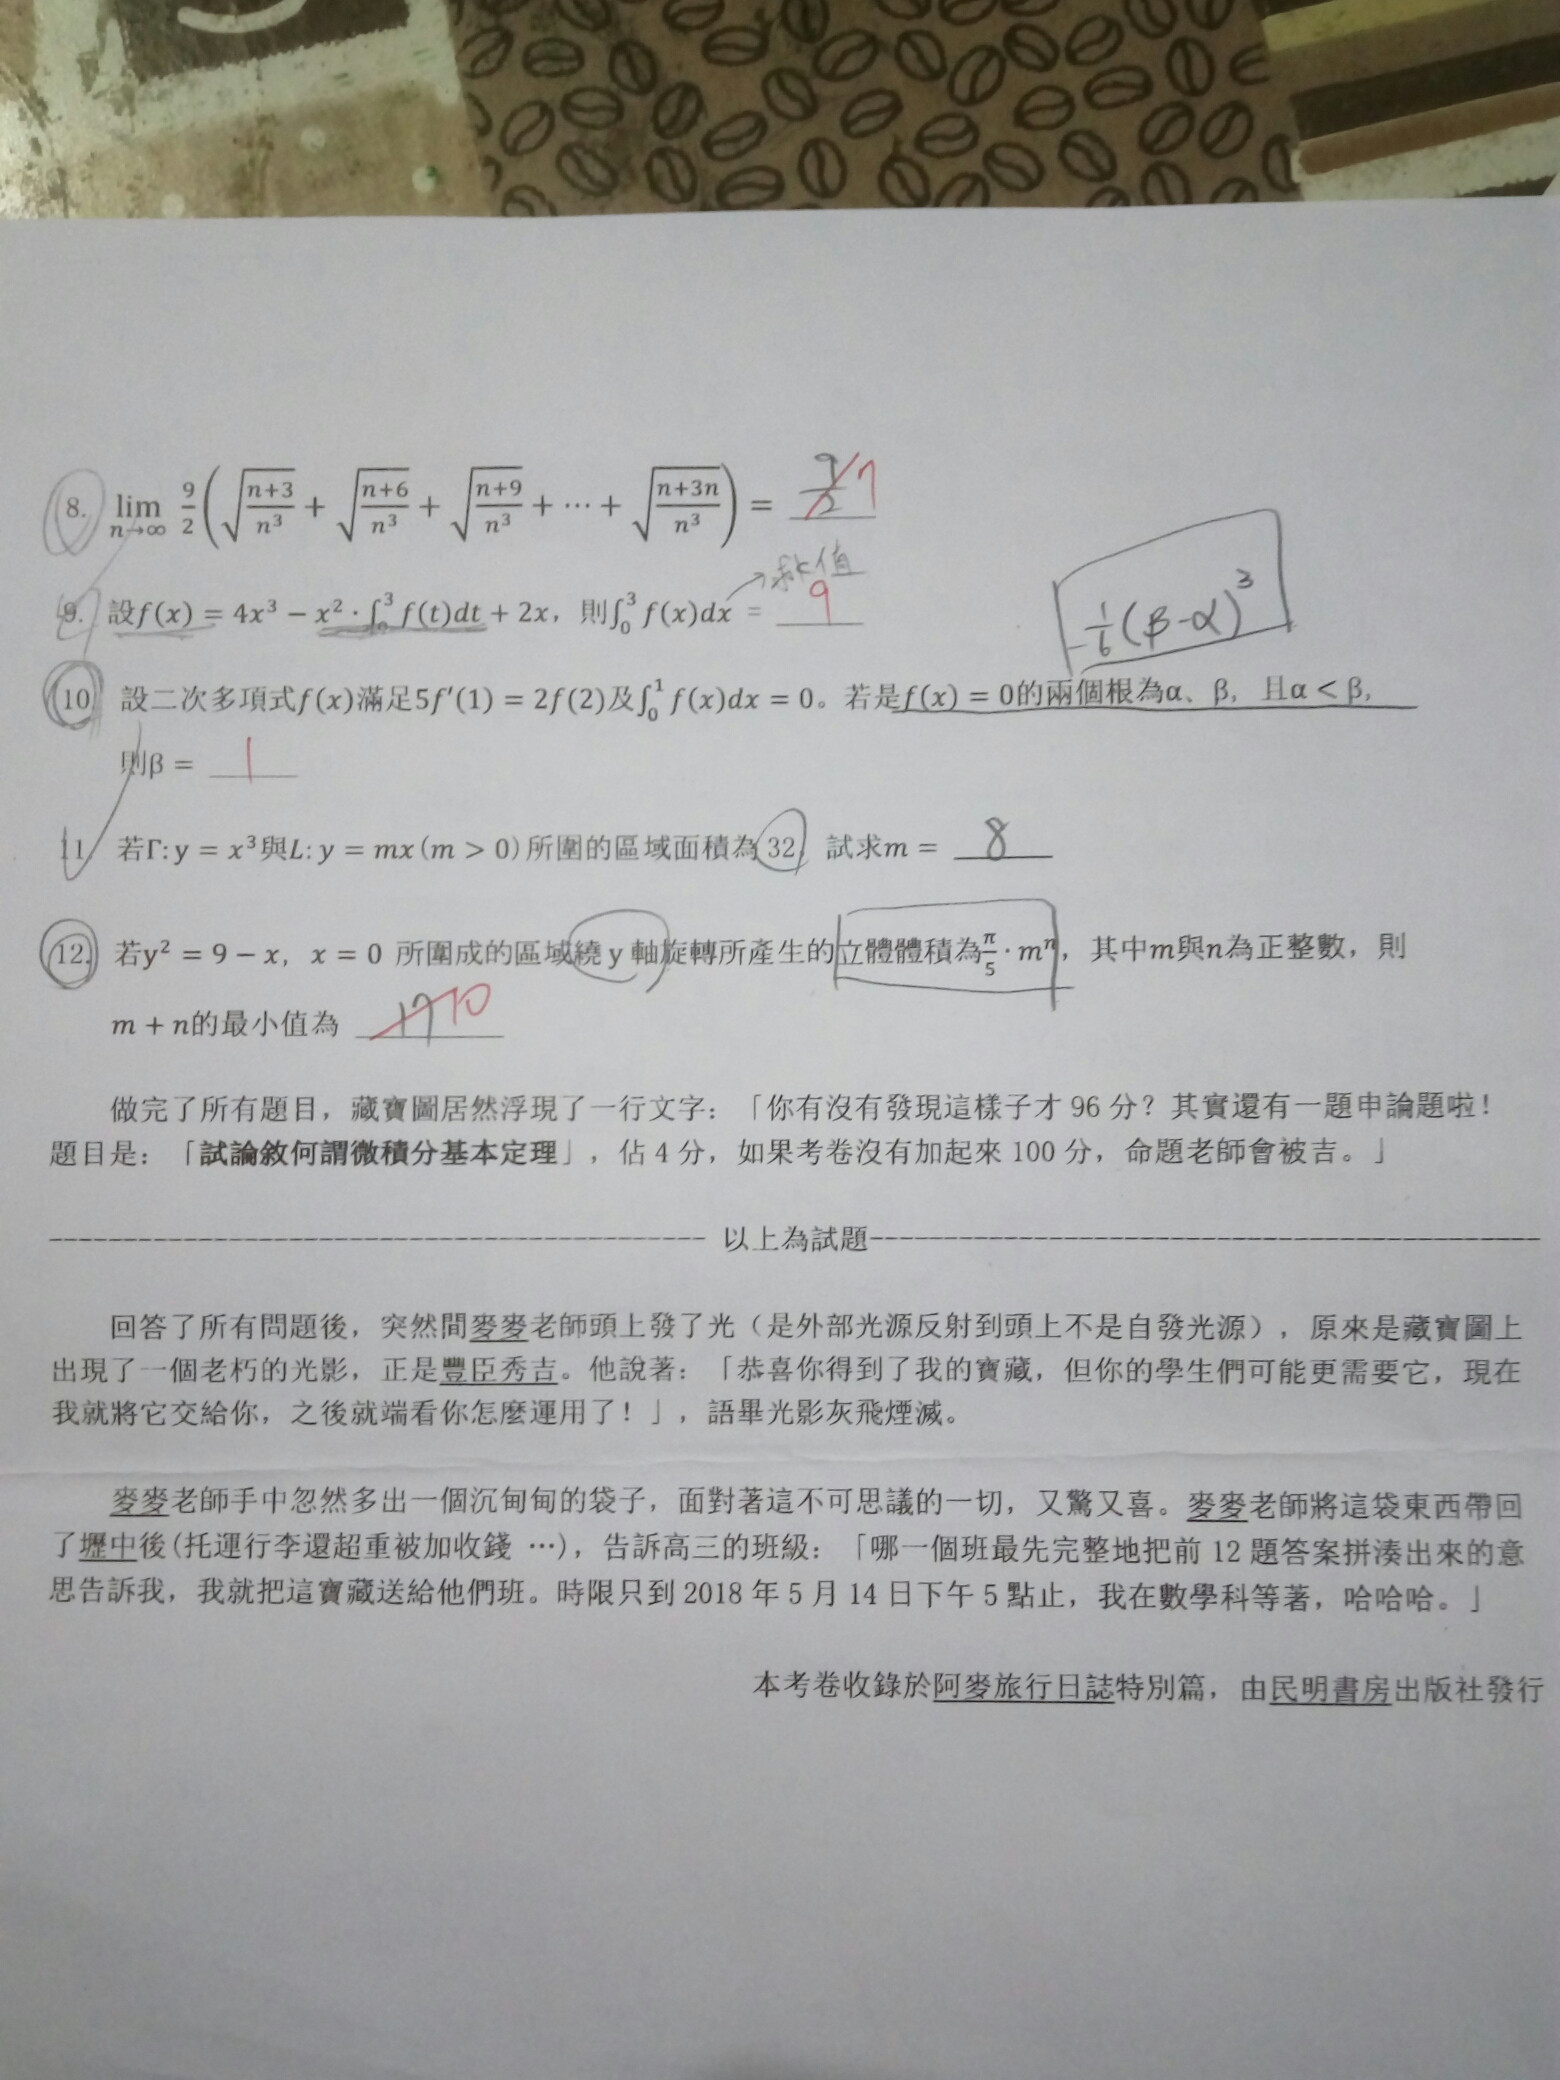 8. lim n→∞ 9/2 (√((n+3)/n³) + √((n+6)/n³) + √((n+9)/n³) + ⋯ + √((n+3n)/n³)) = 9/2 7
→求值
9. 設f(x) = 4x³ − x²·∫₀³ f(t)dt + 2x, 則∫₀³ f(x)dx = 9
-1/6(β-α)³
10. 設二次多項式f(x)滿足5f′(1) = 2f(2)及∫₀¹ f(x)dx = 0。若是f(x) = 0的兩個根為α、β, 且α < β,
則β = 1
11. 若Γ: y = x³與L: y = mx (m > 0)所圍的區域面積為 32, 試求m = 8
12. 若y² = 9 − x, x = 0 所圍成的區域繞 y 軸旋轉所產生的立體體積為π/5 · mⁿ, 其中m與n為正整數, 則
m + n的最小值為 17 10
做完了所有題目, 藏寶圖居然浮現了一行文字: 「你有沒有發現這樣子才 96 分? 其實還有一題申論題啦!
題目是: 「試論敘何謂微積分基本定理」, 佔 4 分, 如果考卷沒有加起來 100 分, 命題老師會被吉。」
-------------------------------------------- 以上為試題---------------------------------------------
回答了所有問題後, 突然間麥麥老師頭上發了光（是外部光源反射到頭上不是自發光源）, 原來是藏寶圖上
出現了一個老朽的光影, 正是豐臣秀吉。他說著: 「恭喜你得到了我的寶藏, 但你的學生們可能更需要它, 現在
我就將它交給你, 之後就端看你怎麼運用了! 」, 語畢光影灰飛煙滅。
麥麥老師手中忽然多出一個沉甸甸的袋子, 面對著這不可思議的一切, 又驚又喜。麥麥老師將這袋東西帶回
了壢中後(托運行李還超重被加收錢 …), 告訴高三的班級: 「哪一個班最先完整地把前 12 題答案拼湊出來的意
思告訴我, 我就把這寶藏送給他們班。時限只到 2018 年 5 月 14 日下午 5 點止, 我在數學科等著, 哈哈哈。」
本考卷收錄於阿麥旅行日誌特別篇, 由民明書房出版社發行